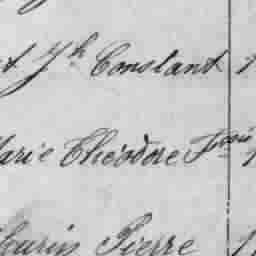 Jh Constant
Marie Théodore Fçois
Pierre